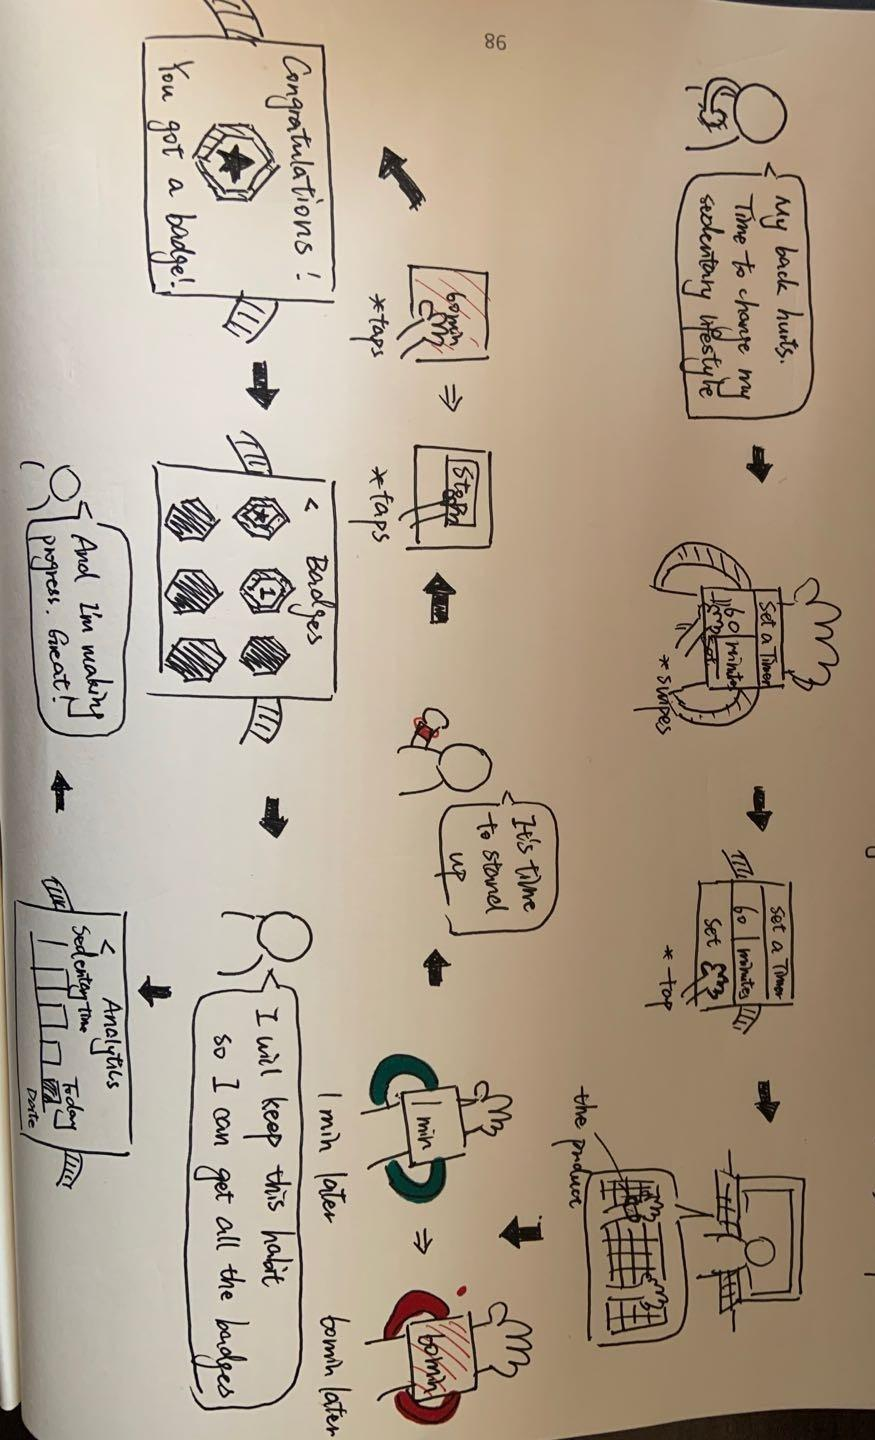 98
My back hurts.
Time to change my
sedentary lifestyle
Set a Timer
60 minutes
*swipes
Set a Timer
60 minutes
Set
*tap
the product
1 min
1 min later
60min
60min later
It's time
to stand
up
60min
*taps
*taps
Congratulations!
You got a badge!
< Badges
1
I will keep this habit
so I can get all the badges
< Analytics
Sedentary time
Today
Date
And I'm making
progress. Great!